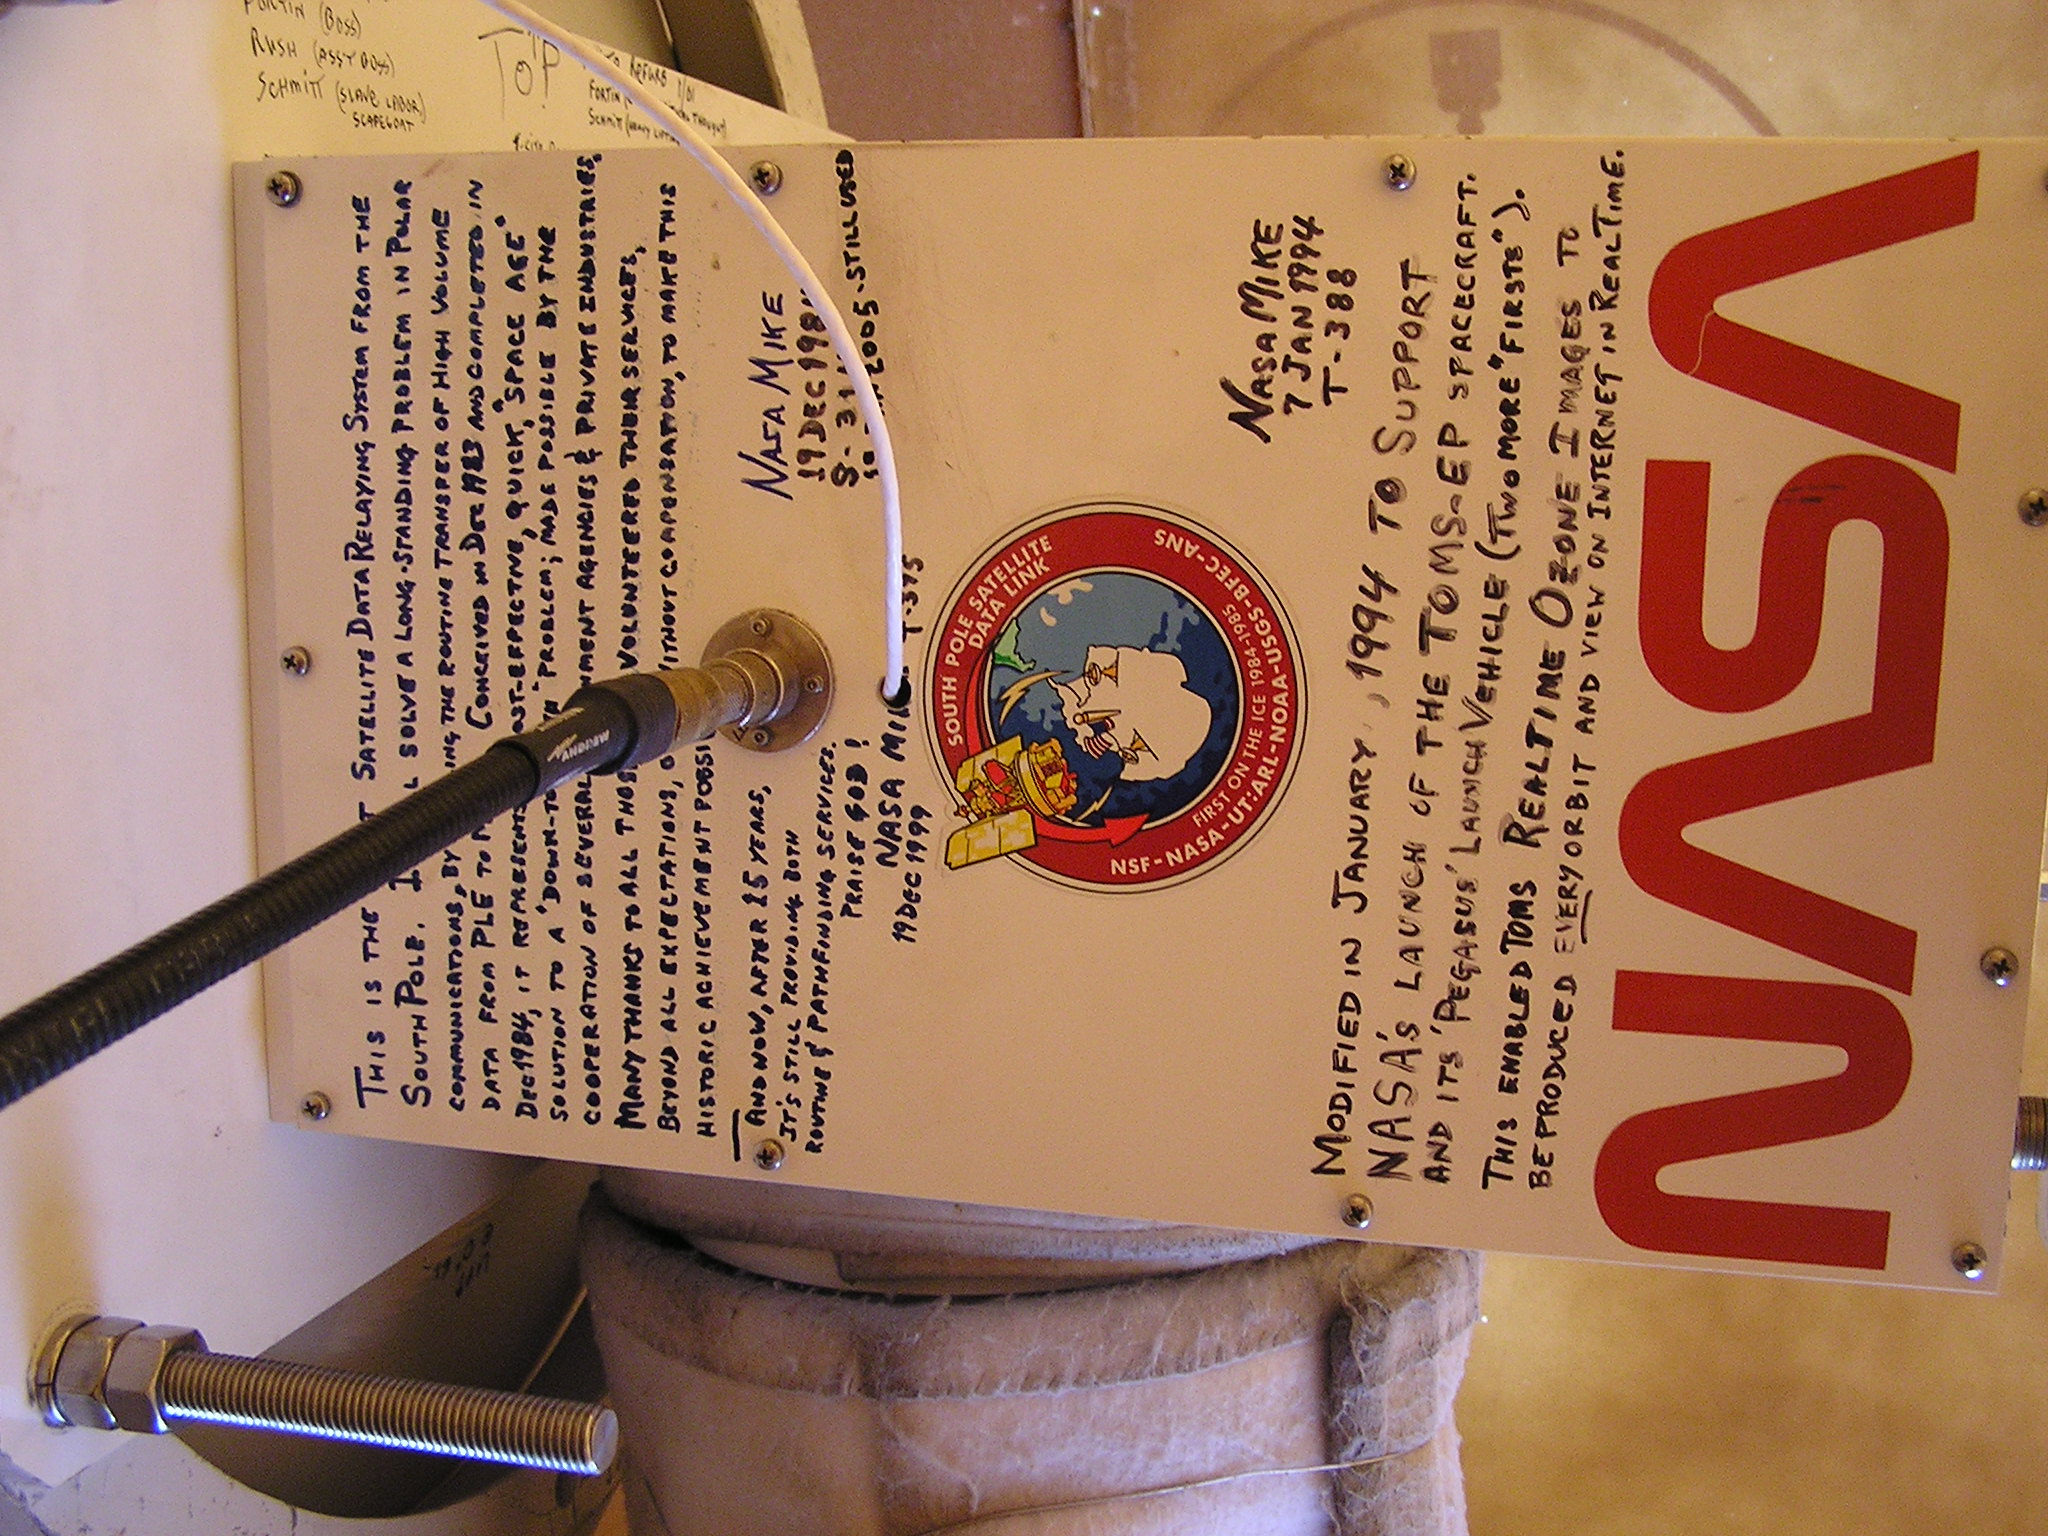 (BOSS)
RUSH (ASST BOSS)
SCHMITT (SLAVE LABOR)
SCAPEGOAT
TOP
REFURB 1/01
FORTIN
SCHMITT (HEAVY
THIS IS THE SATELLITE DATA RELAYING SYSTEM FROM THE
SOUTH POLE. SOLVE A LONG-STANDING PROBLEM IN POLAR
COMMUNICATIONS, BY THE ROUTINE TRANSFER OF HIGH VOLUME
DATA FROM PLE TO CONCEIVED IN DEC 1983 AND COMPLETED IN
DEC 1984, IT REPRESENTS QUICK, "SPACE AGE"
SOLUTION TO A "DOWN-TO PROBLEM; MADE POSSIBLE BY THE
COOPERATION OF SEVERAL AGENCIES & PRIVATE INDUSTRIES,
MANY THANKS TO ALL VOLUNTEERED THEIR SERVICES,
BEYOND ALL EXPECTATIONS, WITHOUT COMPENSATION, TO MAKE THIS
HISTORIC ACHIEVEMENT
NASA MIKE
19 DEC
2005-STILL USED
AND NOW, AFTER 15 YEARS,
IT'S STILL PROVIDING BOTH
ROUTINE & PATHFINDING SERVICES.
PRAISE GOD!
NASA
19 DEC 1999
SOUTH POLE SATELLITE
DATA LINK
FIRST ON THE ICE 1984-1985
NSF-NASA-UT:ARL-NOAA-USGS-BFEC-ANS
ANDREW
NASA MIKE
7 JAN 1994
T-388
MODIFIED IN JANUARY, 1994 TO SUPPORT
NASA'S LAUNCH OF THE TOMS-EP SPACECRAFT.
AND ITS 'PEGASUS' LAUNCH VEHICLE (TWO MORE "FIRSTS").
THIS ENABLED TOMS REALTIME OZONE IMAGES TO
BE PRODUCED EVERY ORBIT AND VIEW ON INTERNET IN REAL TIME.
NASA